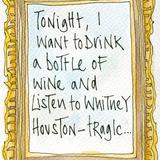 TONIGHT, I
WANT to DRINK
A BOTTLE OF
WINE AND
LISTEN to WHITNEY
HOUSTON-tRAGIC...